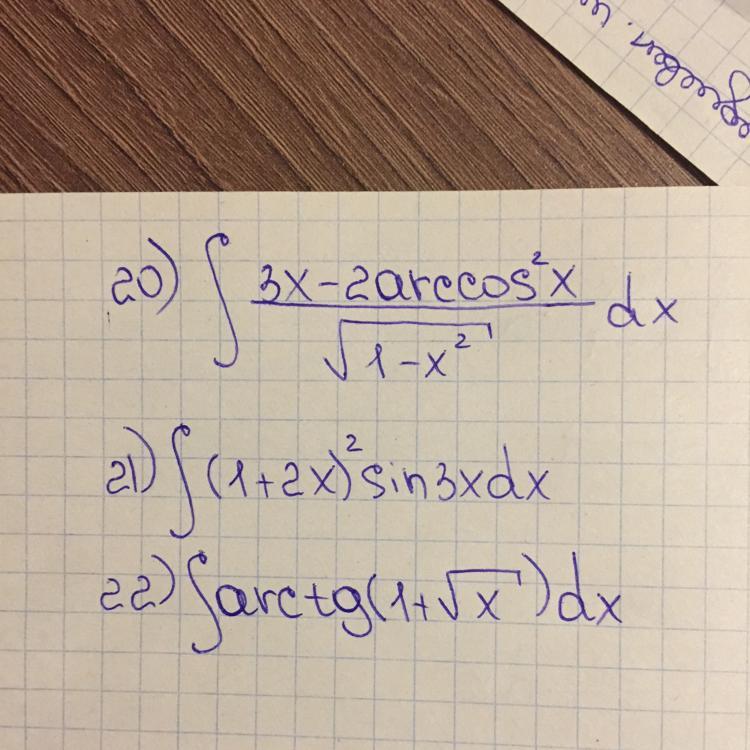 20) ∫ (3x-2arccos²x)/√(1-x²) dx
21) ∫(1+2x)² sin3xdx
22) ∫arctg(1+√x)dx